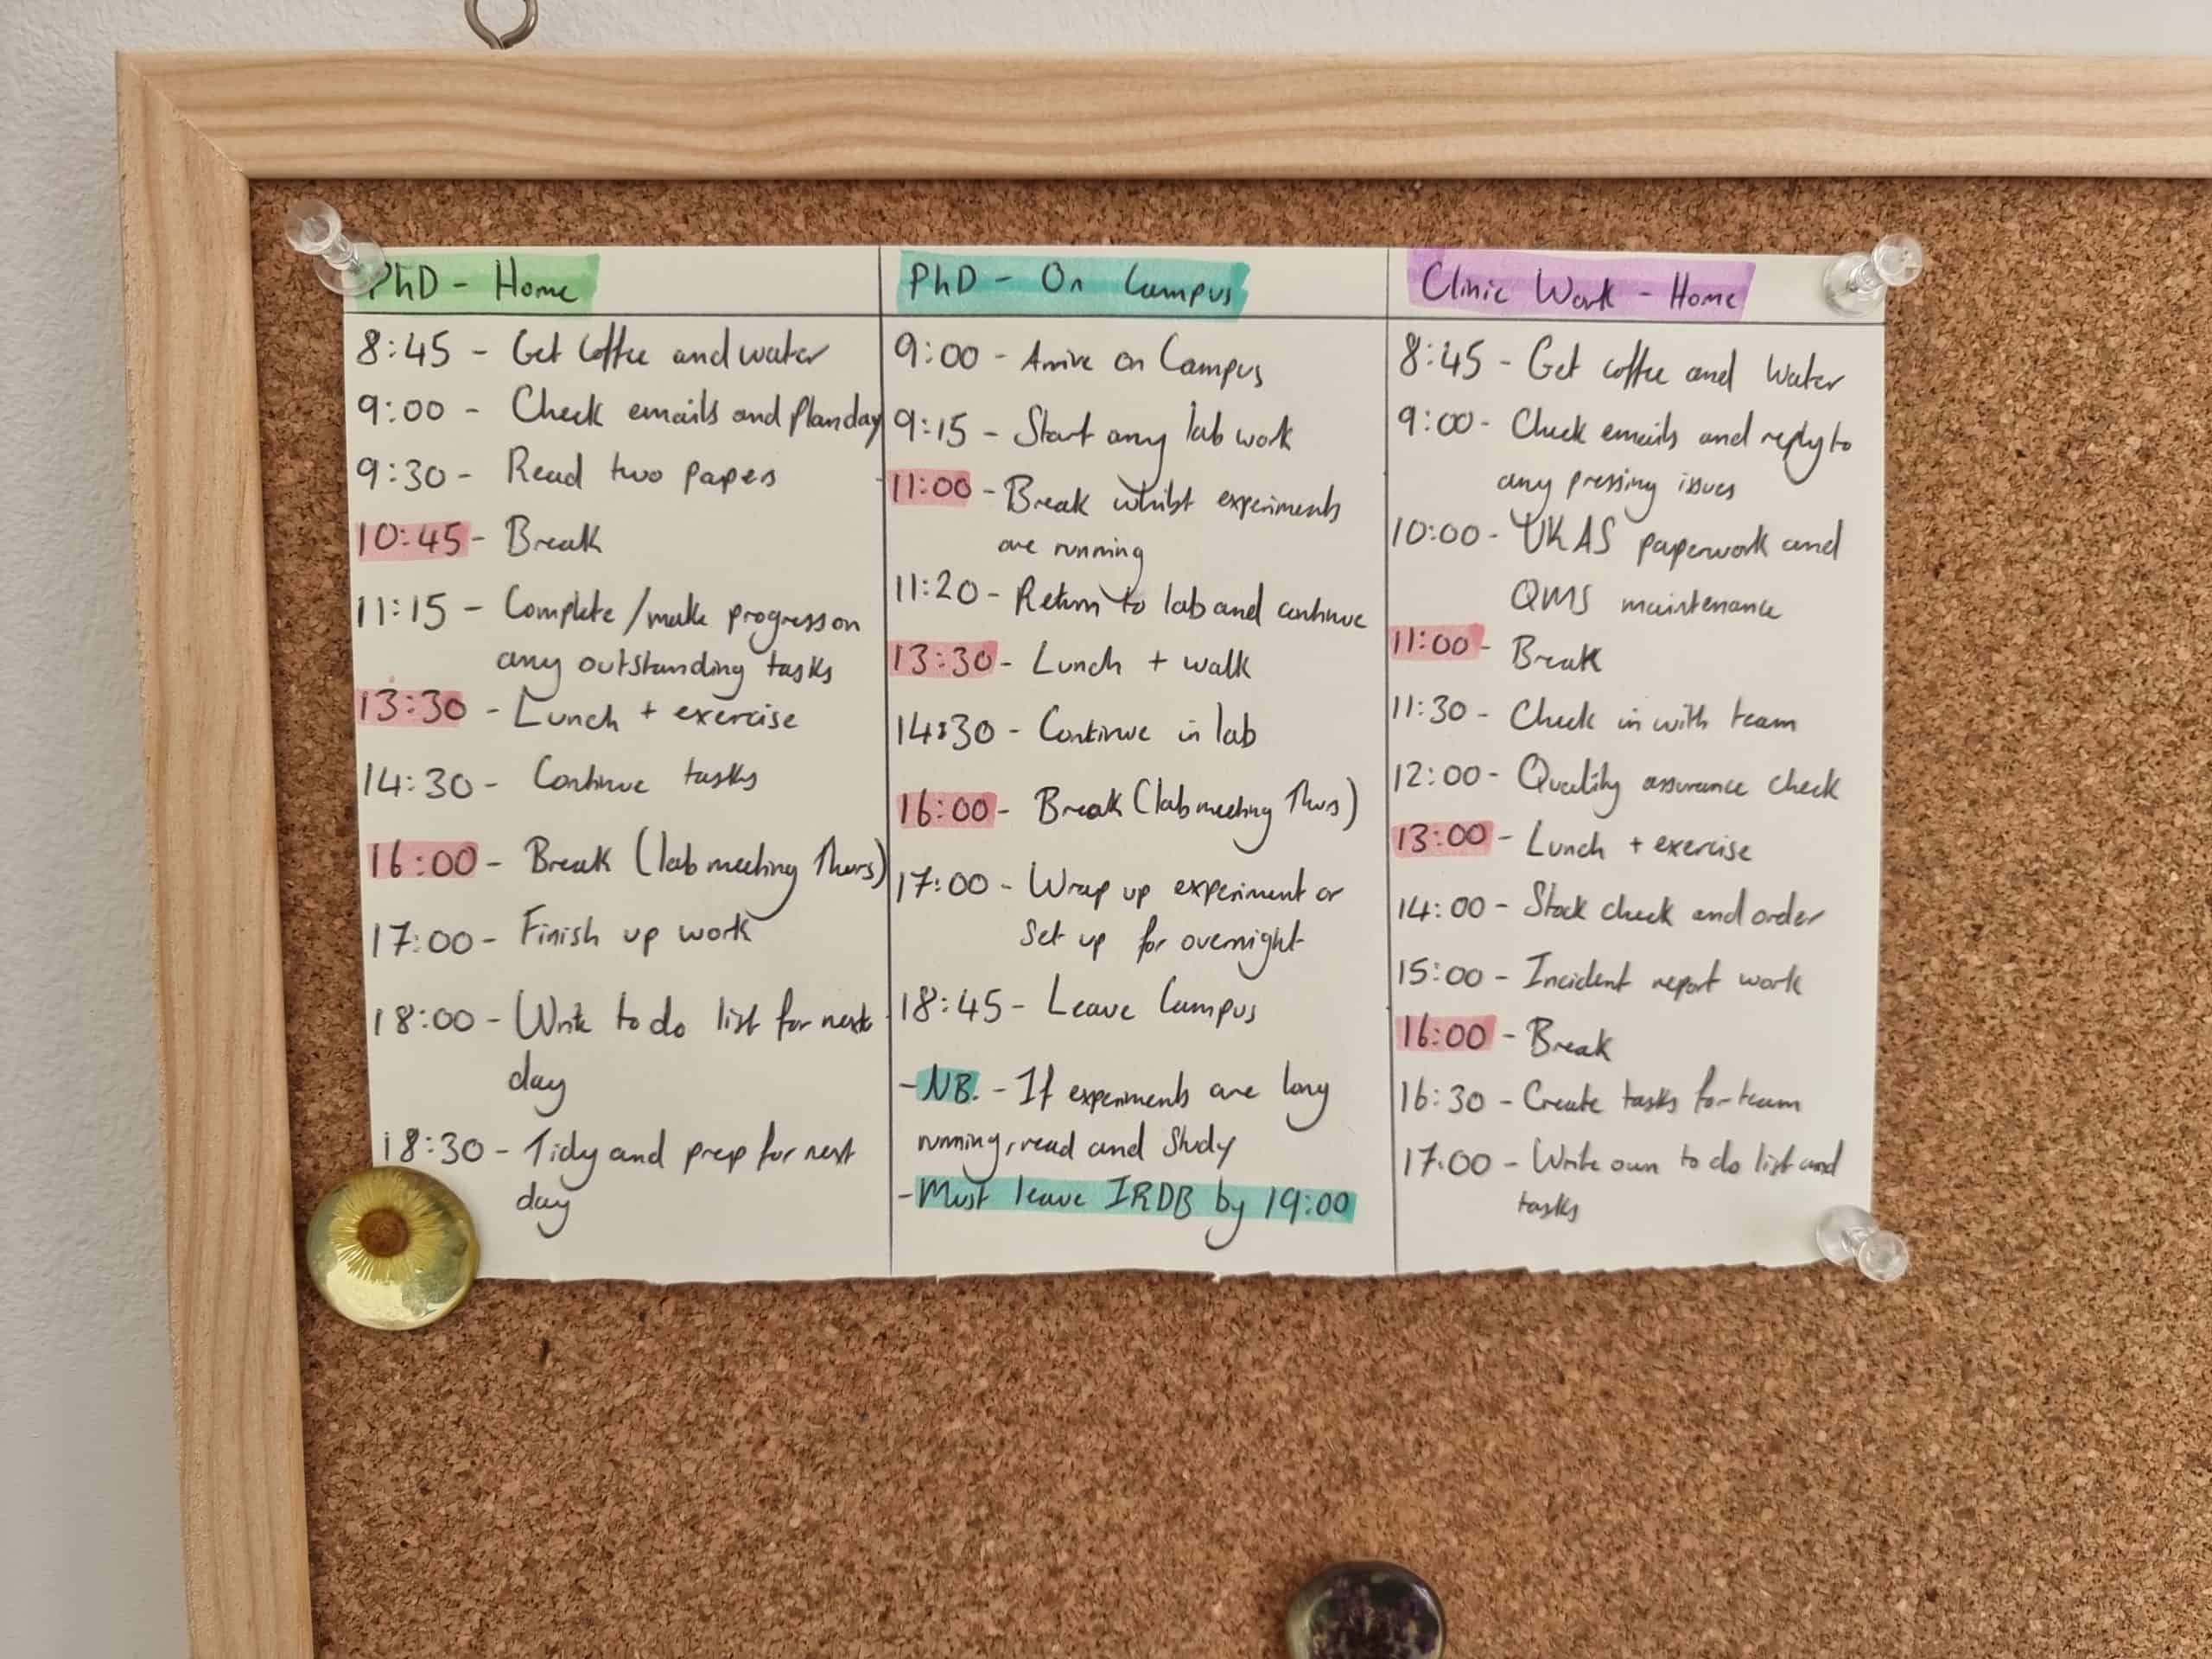 PhD - Home
8:45 - Get coffee and water
9:00 - Check emails and plan day
9:30 - Read two papers
10:45 - Break
11:15 - Complete/make progress on
any outstanding tasks
13:30 - Lunch + exercise
14:30 - Continue tasks
16:00 - Break (lab meeting Thurs)
17:00 - Finish up work
18:00 - Write to do list for next
day
18:30 - Tidy and prep for next
day
PhD - On Campus
9:00 - Arrive on Campus
9:15 - Start any lab work
11:00 - Break whilst experiments
are running
11:20 - Return to lab and continue
13:30 - Lunch + walk
14:30 - Continue in lab
16:00 - Break (lab meeting Thurs)
17:00 - Wrap up experiment or
Set up for overnight
18:45 - Leave Campus
- NB. - If experiments are long
running, read and study
- Must leave IRDB by 19:00
Clinic Work - Home
8:45 - Get coffee and Water
9:00 - Check emails and reply to
any pressing issues
10:00 - UKAS paperwork and
QMS maintenance
11:00 - Break
11:30 - Check in with team
12:00 - Quality assurance check
13:00 - Lunch + exercise
14:00 - Stock check and order
15:00 - Incident report work
16:00 - Break
16:30 - Create tasks for team
17:00 - Write own to do list and
tasks